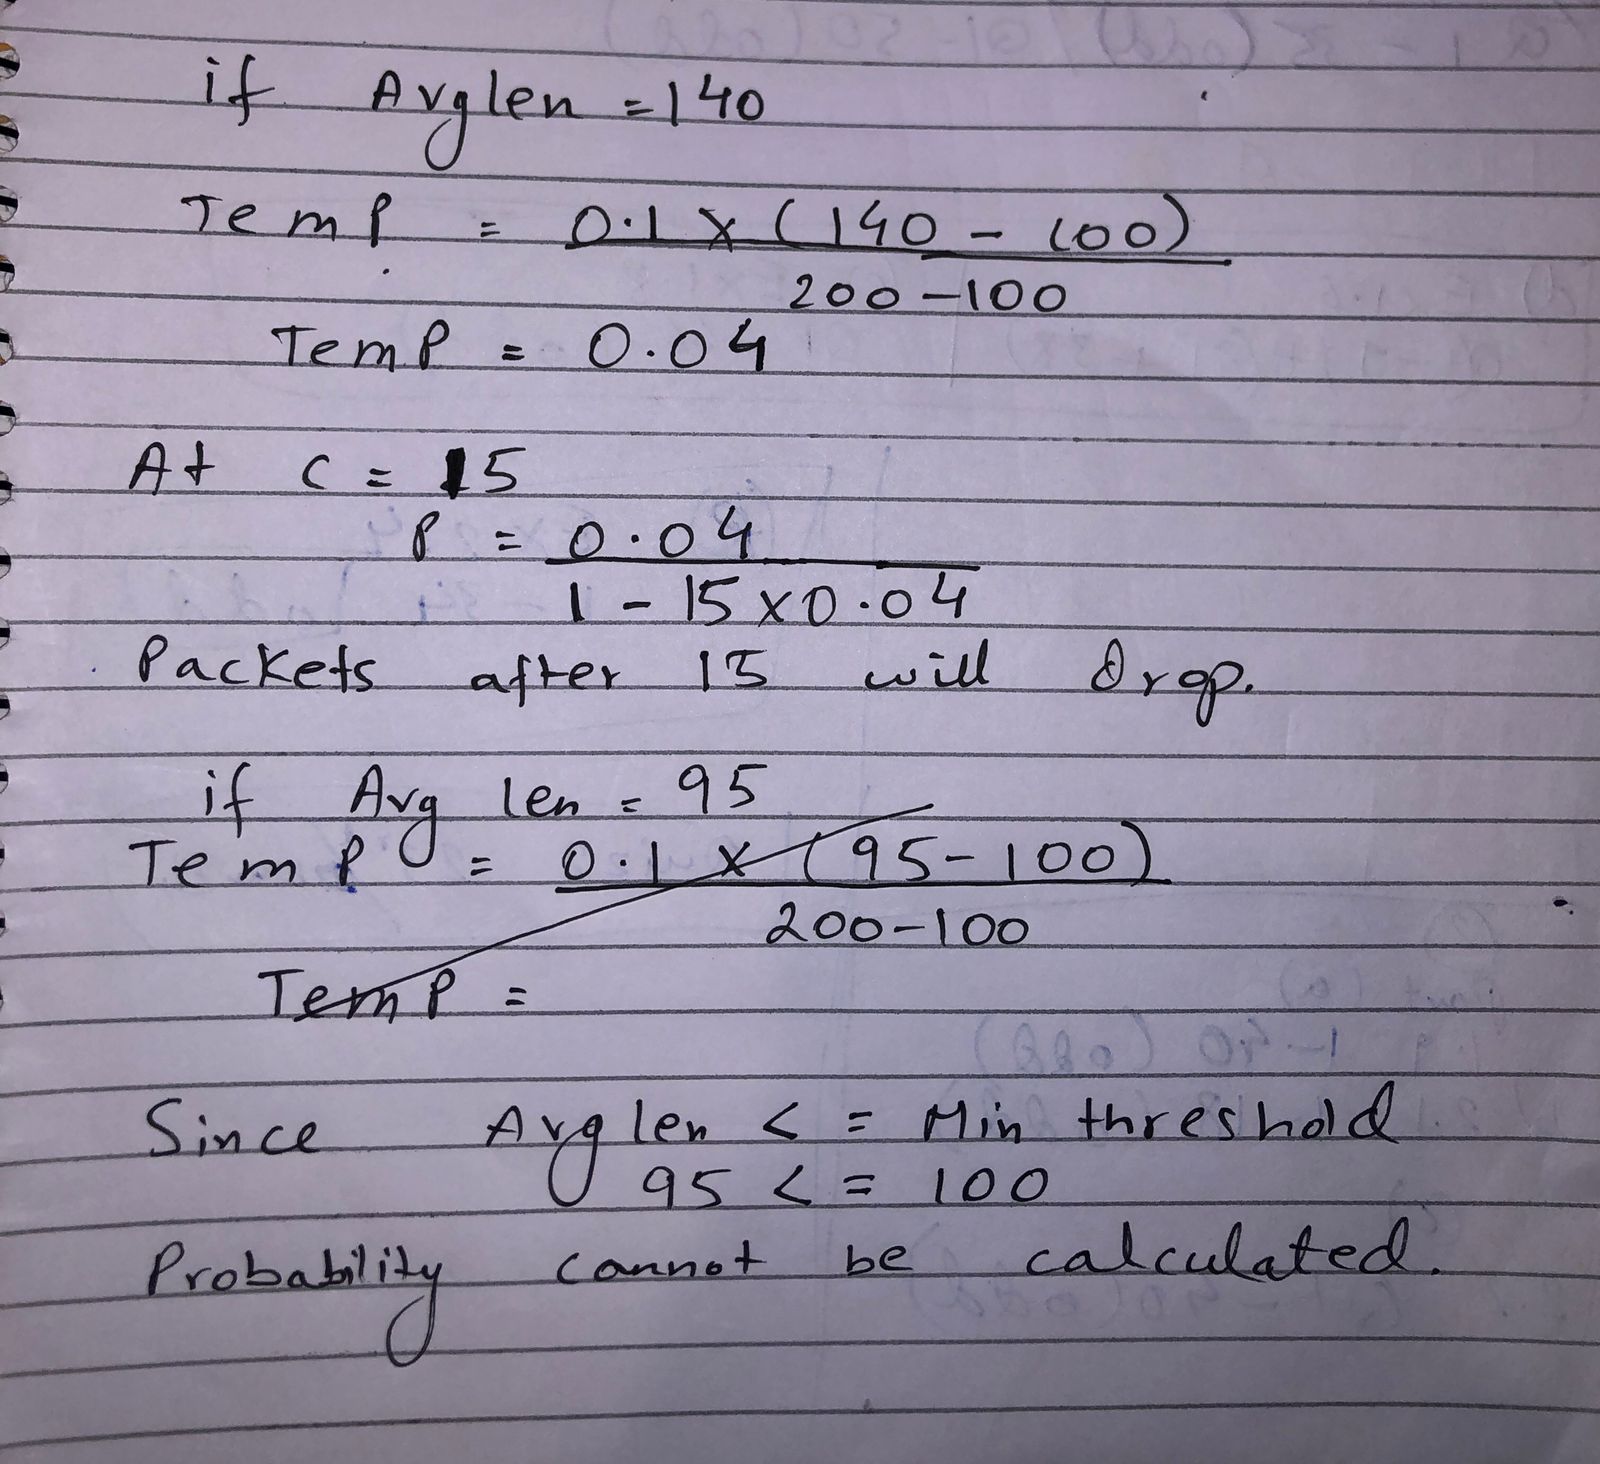 if Avglen = 140
Temp = 0.1 x (140 - 100)
200 - 100
Temp = 0.04
At c = 15
P = 0.04
1 - 15 x 0.04
Packets after 15 will drop.
if Avg len = 95
Temp = 0.1 x (95 - 100)
200 - 100
Temp =
Since Avg len < = Min threshold
95 < = 100
Probability cannot be calculated.